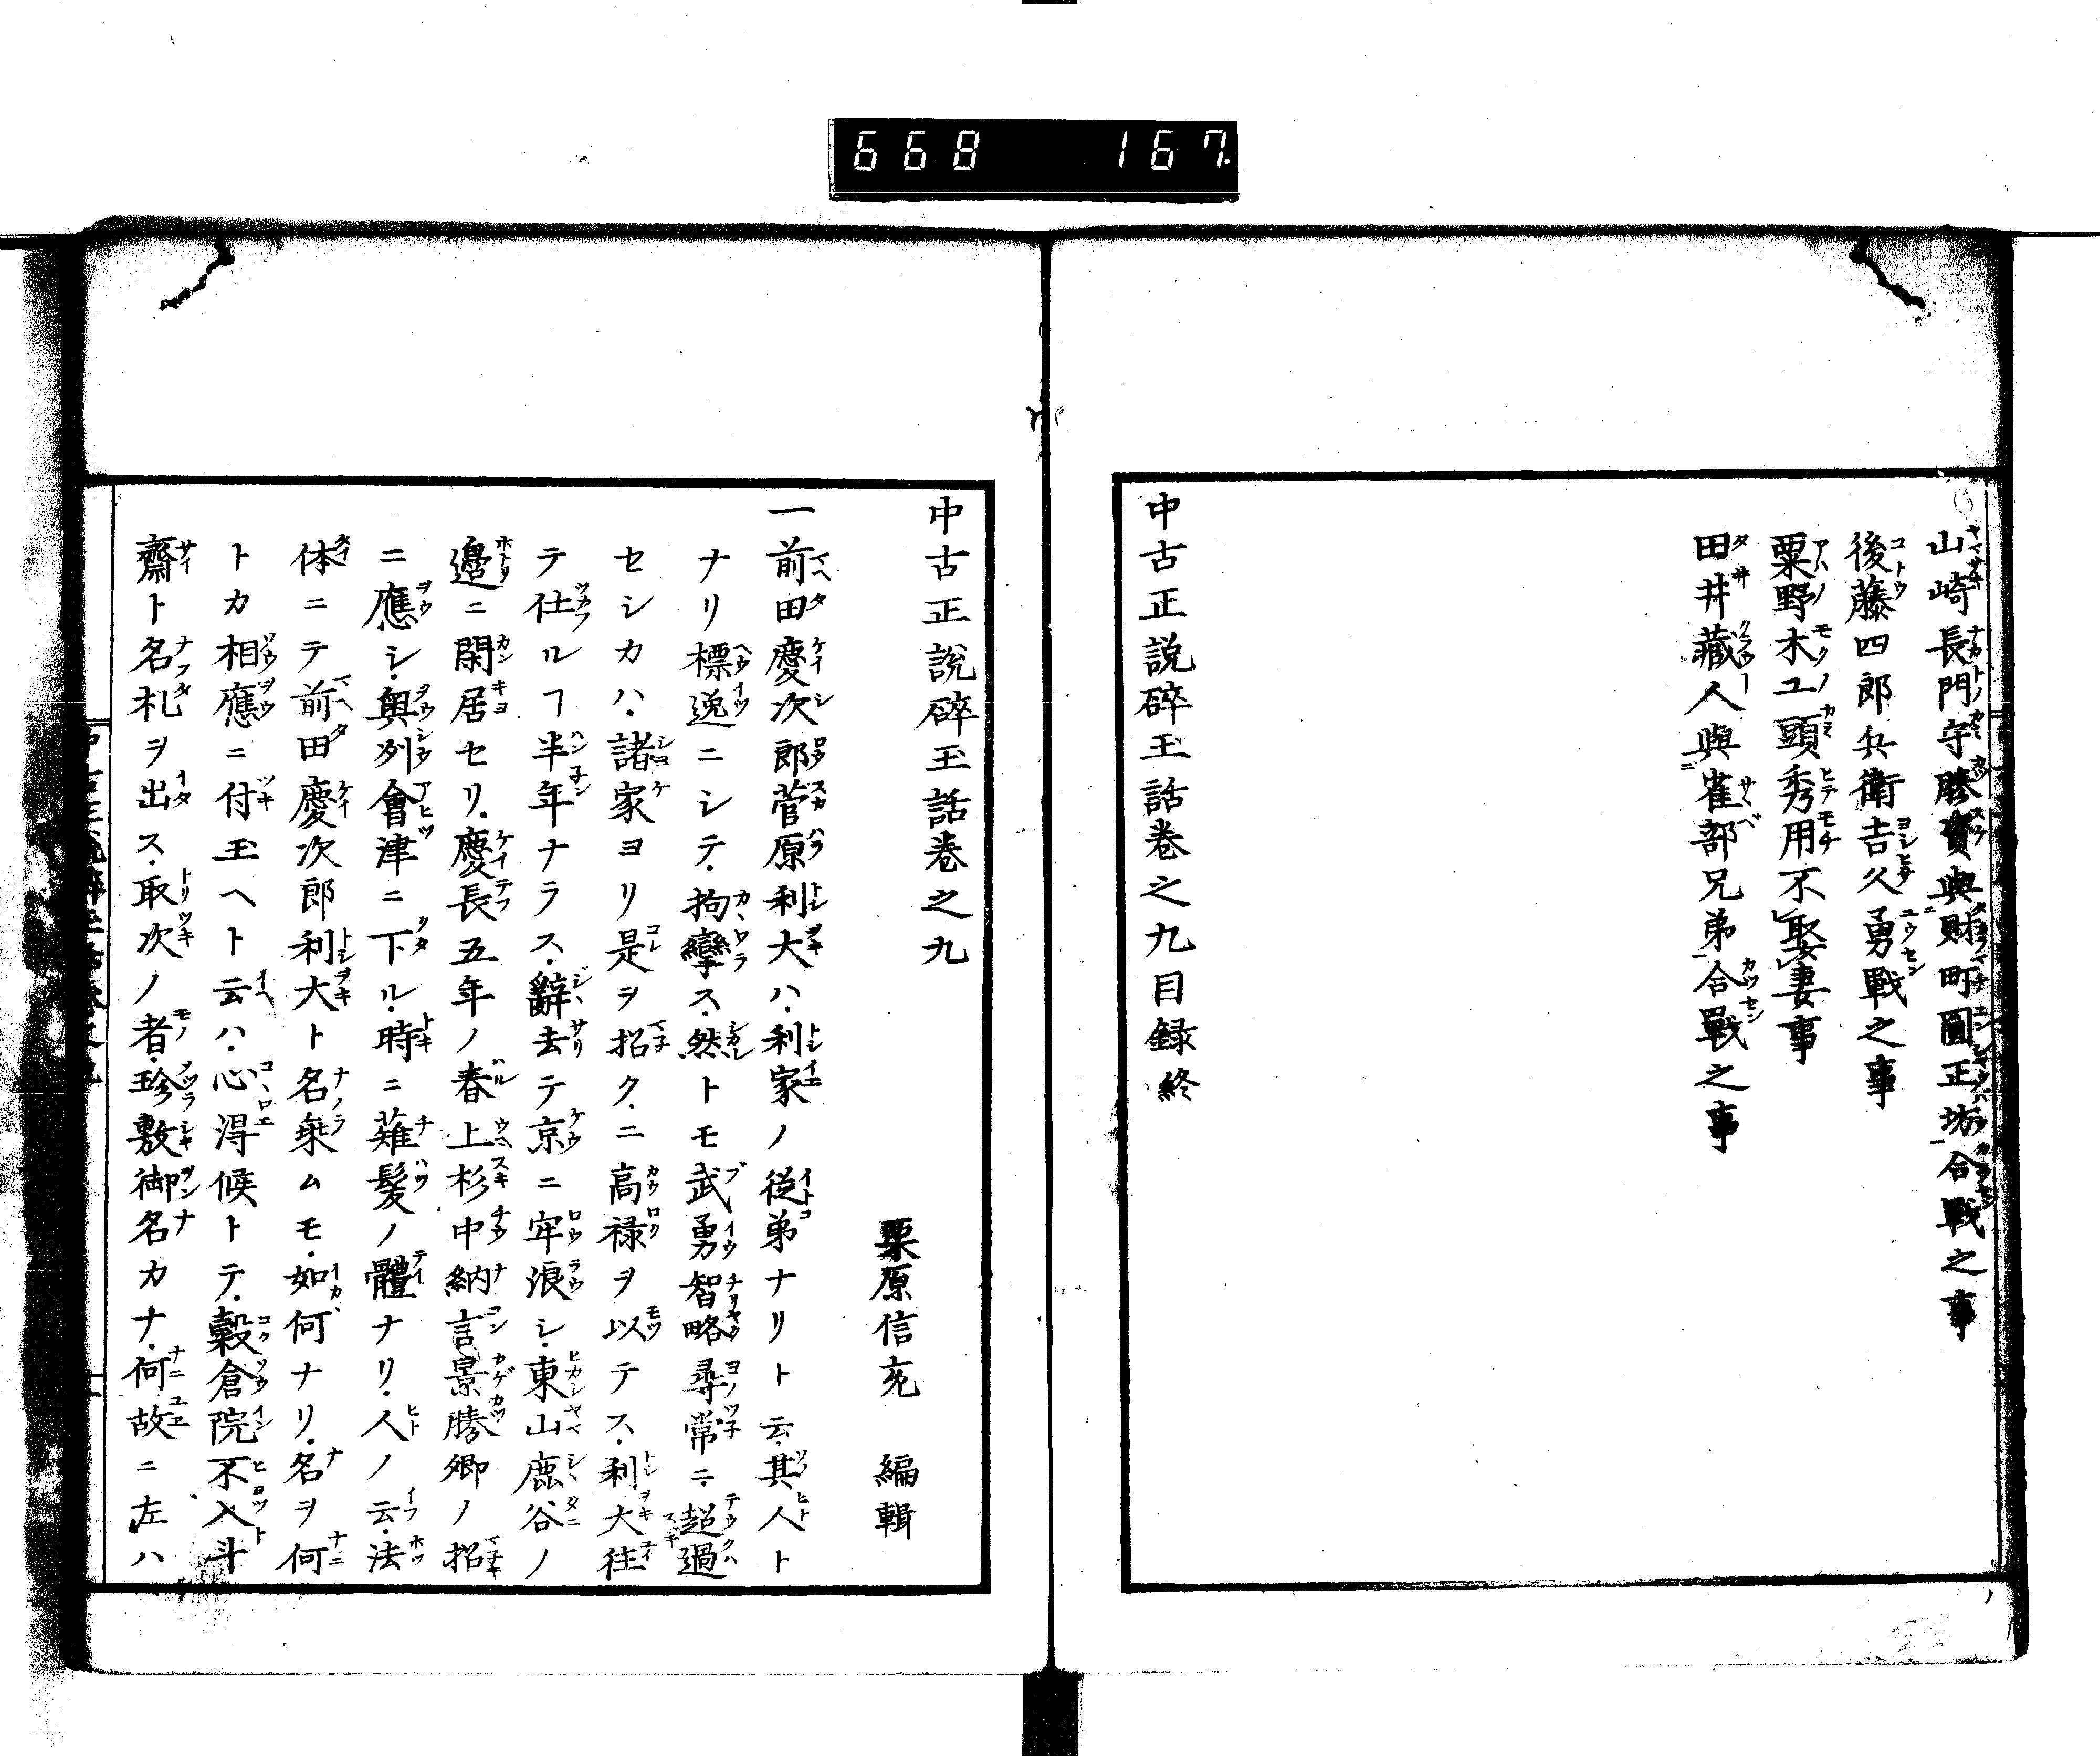 668 167
山崎長門守勝寳與賄町圓正坊合戰之事
後藤四郎兵衛吉久勇戰之事
粟野木工頭秀用不娶妻事
田井藏人與雀部兄弟合戰之事
中古正説碎玉話巻之九目録終
中古正說碎玉話巻之九
栗原信充 編輯
一前田慶次郎菅原利大ハ、利家ノ従弟ナリト云、其人ト
ナリ標逸ニシテ、拘攣ス、然トモ武勇智略尋常ニ、超過
セシカハ、諸家ヨリ是ヲ招ク、ニ高禄ヲ以テス、利大往
テ仕ルヿ半年ナラス、辭去テ京ニ牢浪シ、東山鹿谷ノ
邉ニ閑居セリ、慶長五年ノ春上杉中納言景勝卿ノ招
ニ應シ、奥列會津ニ下ル、時ニ薙髪ノ體ナリ、人ノ云、法
体ニテ前田慶次郎利大ト名乗ムモ、如何ナリ、名ヲ何
トカ相應ニ付玉ヘト云ハ、心得候トテ、穀倉院不入斗
齋ト名札ヲ出ス、取次ノ者、珍敷御名カナ、何故ニ左ハ